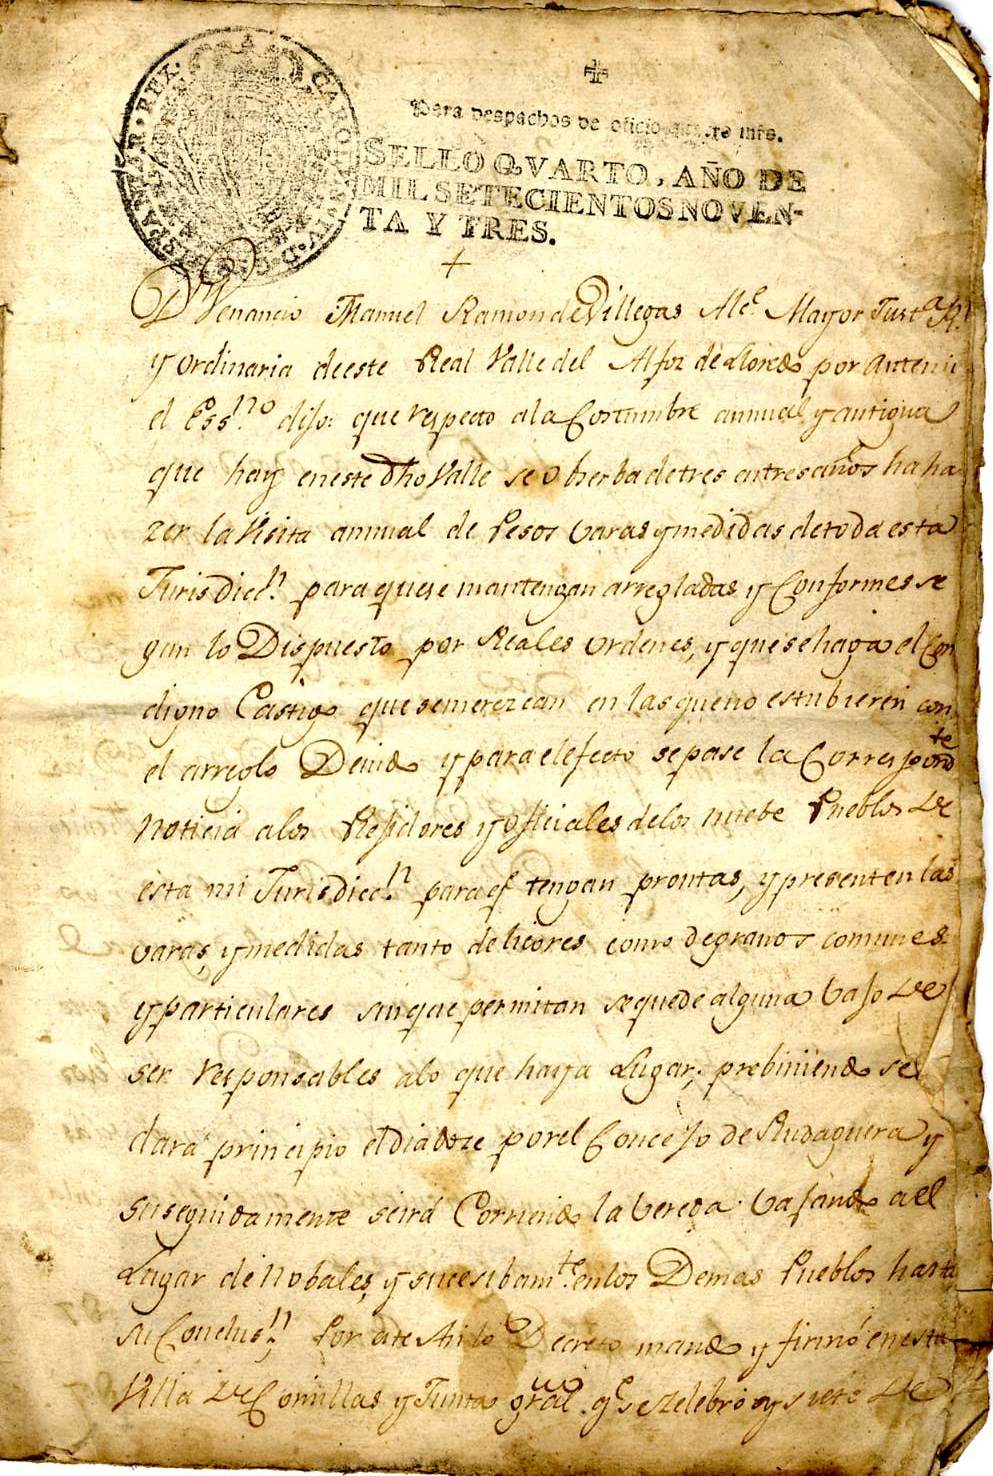 CAROLUS IV D G HISPANIAR. REX.
Para despachos de oficio quatro mrs.
SELLO QVARTO, AÑO DE
MIL SETECIENTOS NOVEN-
TA Y TRES.
Dn Venancio Manuel Ramon de Villegas Alc.e Mayor Just.a R.l
y ordinaria de este Real Valle del Alfoz de Lloredo por antemi
el Ess.no dijo: que respecto ala Costumbre annual y antigua
que hay en este dho Valle se obserba de tres entres años ha ha
zer la Visita annual de Pesos Varas y medidas de toda esta
Jurisdicc.n para que se mantengan arregladas y Conformes se
gun lo Dispuesto por Reales ordenes, y que se haga el Con
digno Castigo que se merezcan en las que no estubieren con
el arreglo Devido y para el efecto se pase la Correspond.te
Noticia alos Rejidores y ofiziales delos nuebe Pueblos de
esta mi Jurisdicc.n para q.e tengan prontas, y presenten las
varas, y medidas tanto de licores como de granos comunes
y particulares sin que permitan se quede alguna bajo de
ser responsables alo que haya Lugar; prebiniendo se
dara principio el dia doze por el Concejo de Rudaguera y
suseguidamente seirá Corriendo la bereda bajando a el
Lugar de Nobales, y sucesibam.te en los Demas Pueblos hasta
su Conclus.n Por este Decreto mando y firmó en esta
Villa de Comillas y Junta gral. q.e se zelebró oy siete de